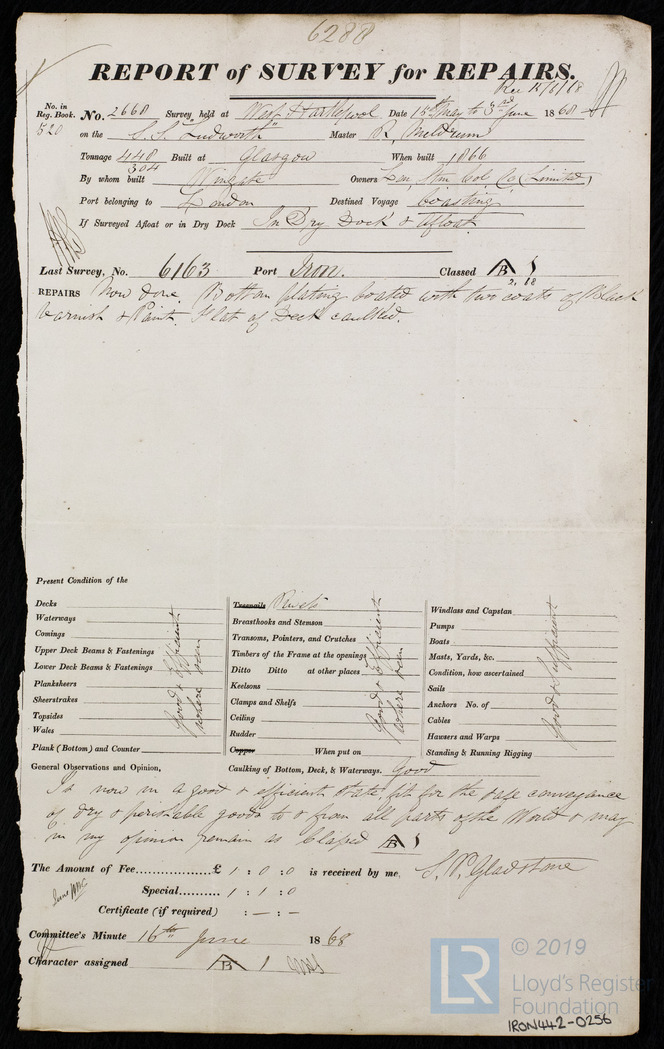 6288
REPORT of SURVEY for REPAIRS.
Rec 15/6/68
No. in Reg. Book. No. 2668 Survey held at West Hartlepool Date 15th May to 3rd June 1868
520 on the S.S. "Ludworth" Master R. Meldrum
Tonnage 448 Built at Glasgow When built 1866
304
By whom built Wingate Owners Lon. Stm. Col. Co (Limited)
Port belonging to London Destined Voyage Coasting
If Surveyed Afloat or in Dry Dock In Dry Dock & Afloat
Last Survey, No. 6163 Port Iron. Classed B 1
2, 68
REPAIRS Now done, Bottom plating coated with two coats of Black
Varnish & Paint. Flat of Deck caulked.
Present Condition of the
Decks
Waterways
Comings
Upper Deck Beams & Fastenings
Lower Deck Beams & Fastenings
Planksheers
Sheerstrakes
Topsides
Wales
Plank (Bottom) and Counter
Good & Sufficient
where seen
Treenails Rivets
Breasthooks and Stemson
Transoms, Pointers, and Crutches
Timbers of the Frame at the openings
Ditto Ditto at other places
Keelsons
Clamps and Shelfs
Ceiling
Rudder
Copper When put on
Caulking of Bottom, Deck, & Waterways. Good
Good & Sufficient
where seen
Windlass and Capstan
Pumps
Boats
Masts, Yards, &c.
Condition, how ascertained
Sails
Anchors No. of
Cables
Hausers and Warps
Standing & Running Rigging
Good & Sufficient
General Observations and Opinion,
Is now in a good & efficient state, fit for the safe conveyance
of dry & perishable goods to & from all parts of the World & may
in my opinion remain as Classed B 1
The Amount of Fee.................£ 1 : 0 : 0 is received by me, S. P. Gladstone
Special.......... 1 : 1 : 0
Certificate (if required) : — : —
Committee's Minute 16th June 1868
Character assigned B 1
LR © 2019
Lloyd's Register
Foundation
IRON442-0256